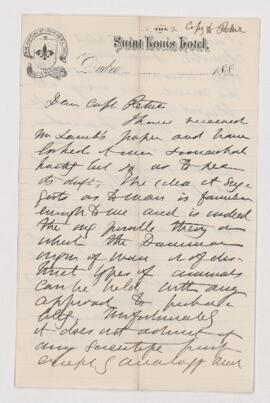 Copy to Peter
THE
Saint Louis Hotel,
Quebec 188
Dear Capt Peter
I have received
Mr Lamb's paper and have
looked it over somewhat
hastily but so as to see
its drift. The idea it sug-
gests as to man is familiar
enough to me and is indeed
the only possible theory on
which the Darwinian
origin of man is of dis-
tinct types of animals
can be held with any
approach to proba-
bility. Unfortunately
it does not admit of
any scientific proof
except by analogy and